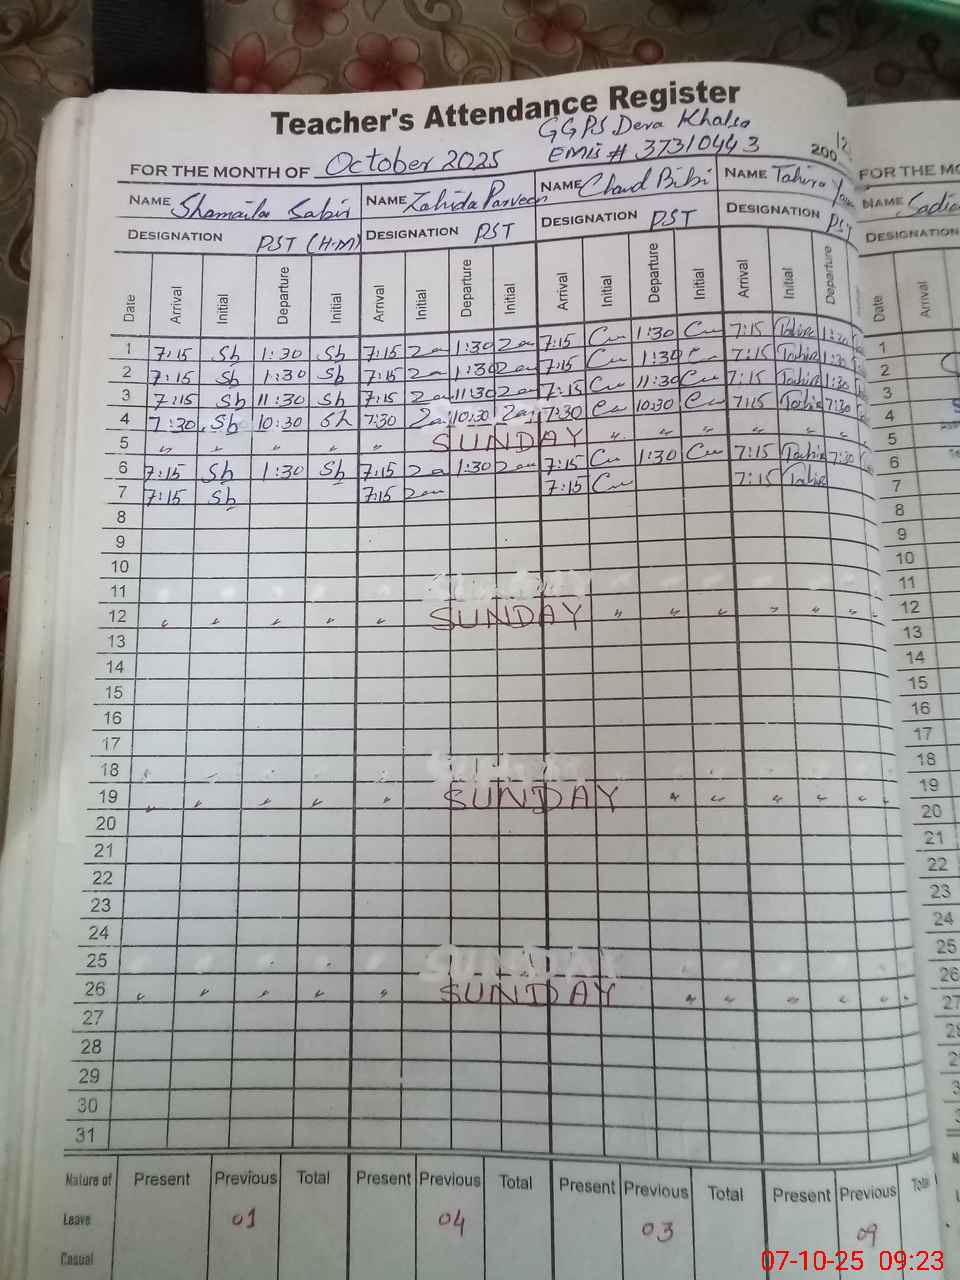 Teacher's Attendance Register
GGPS Dera Khalsa
EMIS # 37310443
200
FOR THE MONTH OF October 2025
FOR THE MO
NAME Shamaila Sabir NAME Zahida Parveen NAME Chand Bibi NAME Tahira
NAME Sadia
DESIGNATION PST (H.M) DESIGNATION PST DESIGNATION PST DESIGNATION PST
DESIGNATION
Date Arrival Initial Departure Initial Arrival Initial Departure Initial Arrival Initial Departure Initial Arrival Initial Departure
Date Arrival
1 7:15 Sb 1:30 Sb 7:15 Za 1:30 Za 7:15 Cu 1:30 Cu 7:15 Tahira 1:30
2 7:15 Sb 1:30 Sb 7:15 Za 1:30 Za 7:15 Cu 1:30 Cu 7:15 Tahira 1:30
3 7:15 Sb 11:30 Sb 7:15 Za 11:30 Za 7:15 Cu 11:30 Cu 7:15 Tahira 1:30
4 7:30 Sb 10:30 Sb 7:30 Za 10:30 Za 7:30 Cu 10:30 Cu 7:15 Tahira 7:30
5 " " " " " SUNDAY " " " " " "
6 7:15 Sb 1:30 Sb 7:15 Za 1:30 Za 7:15 Cu 1:30 Cu 7:15 Tahira 7:30
7 7:15 Sb 7:15 Za 7:15 Cu 7:15 Tahira
8
9
10
11 SUNDAY
12 " " " " " SUNDAY " " " " " "
13
14
15
16
17
18 SUNDAY
19 " " " " " SUNDAY " " " " " "
20
21
22
23
24
25 SUNDAY
26 " " " " " SUNDAY " " " " "
27
28
29
30
31
1
2
3
4
5
6
7
8
9
10
11
12
13
14
15
16
17
18
19
20
21
22
23
24
25
26
27
Nature of Present Previous Total Present Previous Total Present Previous Total Present Previous Total
Leave 01 04 03 09
Casual
07-10-25 09:23